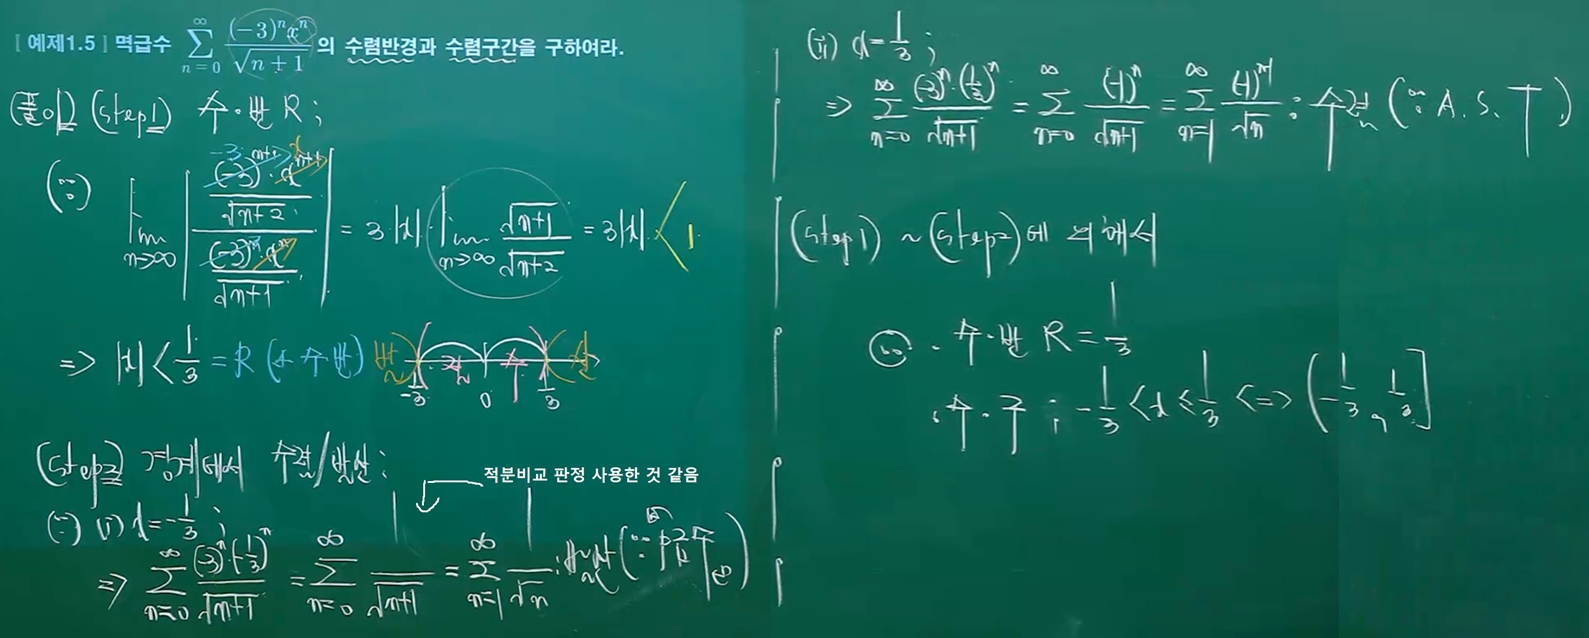 [ 예제1.5 ] 멱급수 \sum_{n=0}^{\infty} \frac{(-3)^n x^n}{\sqrt{n+1}} 의 수렴반경과 수렴구간을 구하여라.
(풀이) (step1) 수·반 R ;
(∵) \lim_{n→∞} \left| \frac{\frac{(-3)^{n+1}·x^{n+1}}{\sqrt{n+2}}}{\frac{(-3)^n·x^n}{\sqrt{n+1}}} \right| = 3|x| · \lim_{n→∞} \frac{\sqrt{n+1}}{\sqrt{n+2}} = 3|x| < 1
-3 x
=> |x| < \frac{1}{3} = R (수반) 발 수 수
-\frac{1}{3} 0 \frac{1}{3}
(step2) 경계에서 수렴/발산 ;
적분비교 판정 사용한 것 같음
(∵) (i) x = -\frac{1}{3} ;
=> \sum_{n=0}^{∞} \frac{(-3)^n·(-\frac{1}{3})^n}{\sqrt{n+1}} = \sum_{n=0}^{∞} \frac{1}{\sqrt{n+1}} = \sum_{n=1}^{∞} \frac{1}{\sqrt{n}} : 발산 (∵
(ii) x = \frac{1}{3} ;
=> \sum_{n=0}^{∞} \frac{(-3)^n·(\frac{1}{3})^n}{\sqrt{n+1}} = \sum_{n=0}^{∞} \frac{(-1)^n}{\sqrt{n+1}} = \sum_{n=1}^{∞} \frac{(-1)^{n-1}}{\sqrt{n}} : 수렴 (∵ A. S. T.)
(step1) ~ (step2)에 의해서
∴ · 수·반 R = \frac{1}{3}
· 수·구 ; -\frac{1}{3} < x ≤ \frac{1}{3} <=> (-\frac{1}{3}, \frac{1}{3}]